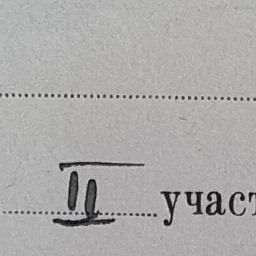 II участ